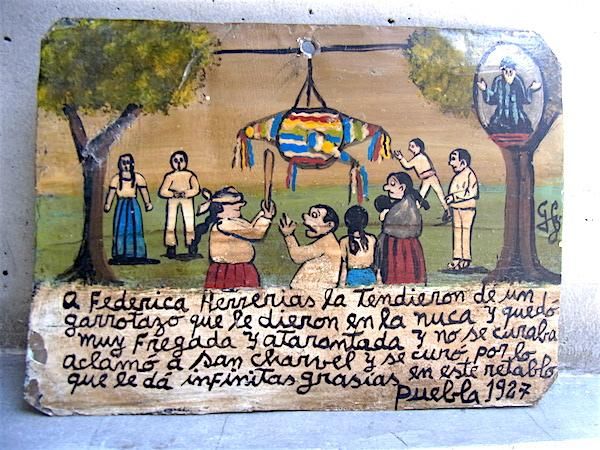 A Federica Herrerias la Tendieron de un
garrotazo que le dieron en la nuca y quedó
muy Fregada y atarantada y no se curaba
aclamó a san charvel y se curó, por lo
que le dá infinitas grasias en esté retablo
Puebla 1927